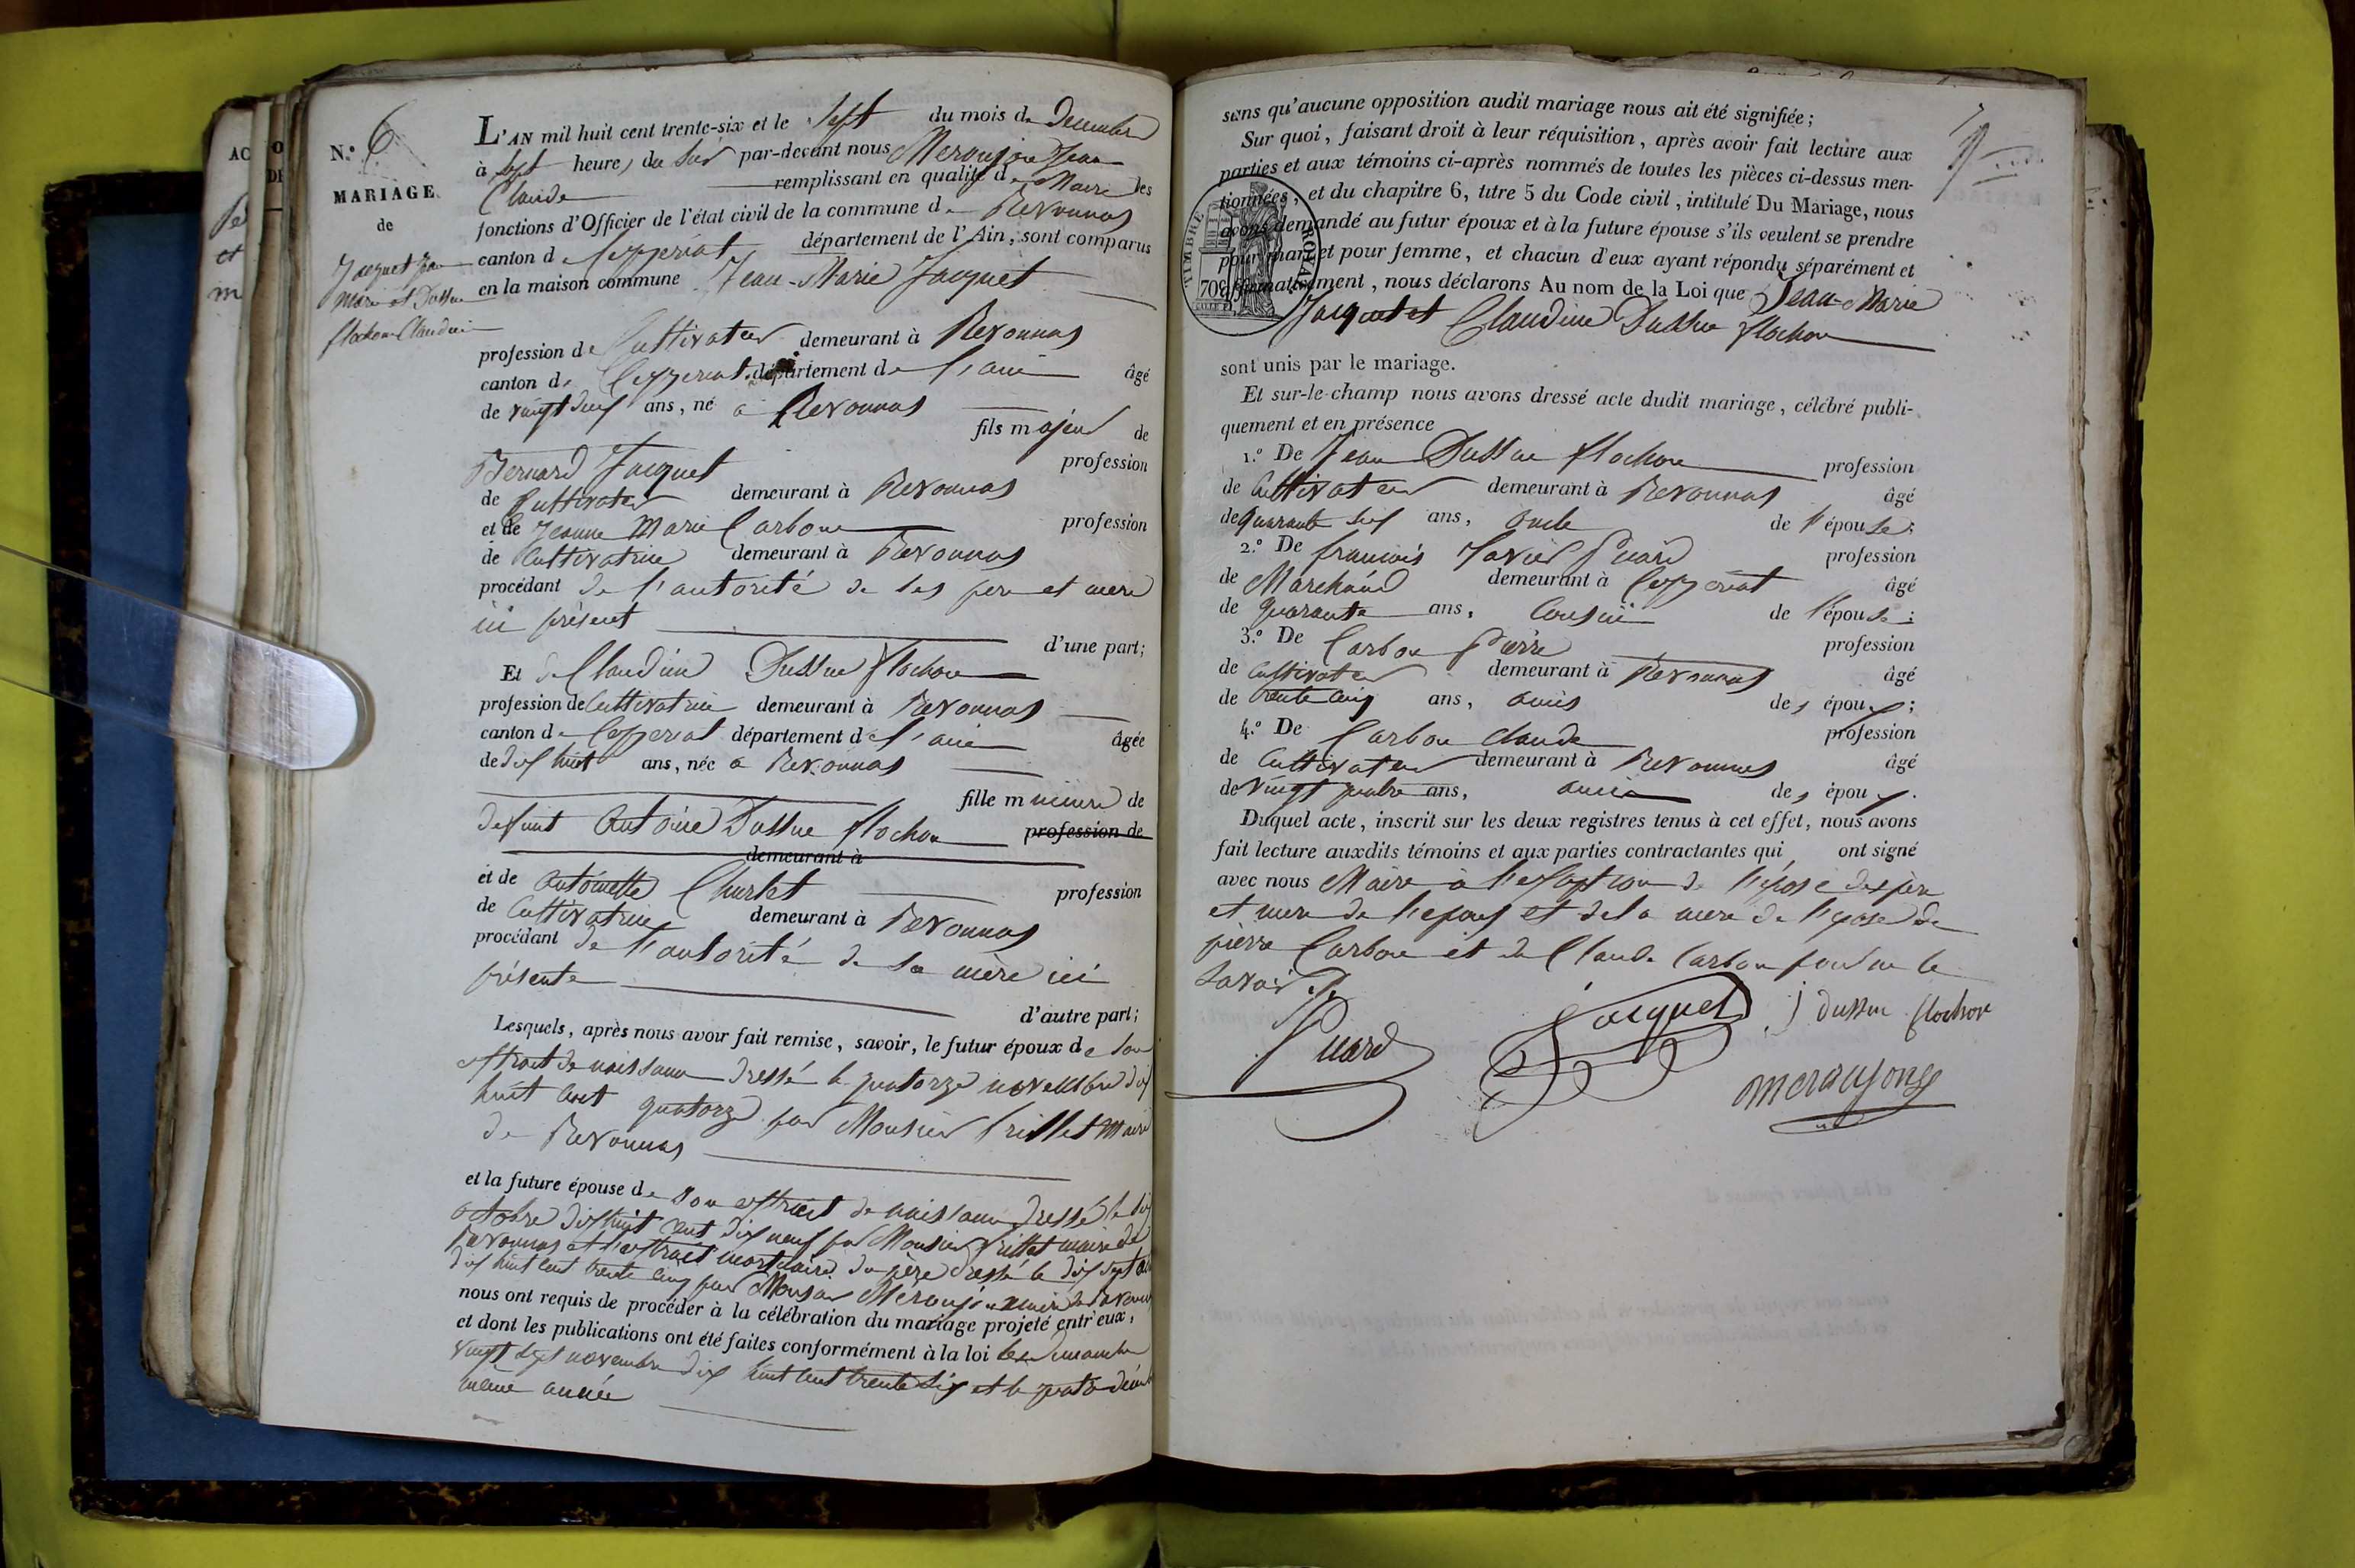 AC
O
DE
Pe
et
m
N.° 6
MARIAGE
de
Jacquet Jean
Marie et Dussue
flochon Claudine
L'AN mil huit cent trente-six et le sept du mois de Decembre
à sept heures du soir par-devant nous Meraujone Jean
Claude remplissant en qualité de Maire les
fonctions d'Officier de l'état civil de la commune de Revonnas
canton de Ceyzeriat département de l'Ain, sont comparus
en la maison commune Jean-Marie Jacquet
profession de Cultivateur demeurant à Revonnas
canton de Ceyzeriat département de l'ain âgé
de vingt deux ans, né à Revonnas
fils majeur de
Bernard Jacquet profession
de Cultivateur demeurant à Revonnas
et de Jeanne Marie Carbon profession
de Cultivatrice demeurant à Revonnas
procédant de l'autorité de ses pere et mere
ici présent
d'une part;
Et de Claudine Dussue flochon
profession de Cultivatrice demeurant à Revonnas
canton de Ceyzeriat département de l'ain âgée
de dix huit ans, née à Revonnas
fille mineure de
defunt Antoine Dussue flochon profession de
demeurant à
et de Antoinette Churlet profession
de Cultivatrice demeurant à Revonnas
procédant de l'autorité de sa mère ici
présente
d'autre part;
Lesquels, après nous avoir fait remise, savoir, le futur époux de son
extrait de naissance dressé le quatorze novembre dix
huit cent quatorze par Monsieur frillet Maire
de Revonnas
et la future épouse de son extrait de naissance dressé le dix
octobre dix huit cent dix neuf par Monsieur frillet maire de
Revonnas et l'extrait mortuaire du père dressé le dix sept
dix huit cent trente cinq par Monsieur Meraujone maire de Revonnas
nous ont requis de procéder à la célébration du mariage projeté entr'eux,
et dont les publications ont été faites conformément à la loi les dimanche
vingt sept novembre dix huit cent trente six et le quatre décembre
même année
sans qu'aucune opposition audit mariage nous ait été signifiée;
Sur quoi, faisant droit à leur réquisition, après avoir fait lecture aux
parties et aux témoins ci-après nommés de toutes les pièces ci-dessus men-
tionnées, et du chapitre 6, titre 5 du Code civil, intitulé Du Mariage, nous
avons demandé au futur époux et à la future épouse s'ils veulent se prendre
pour mari et pour femme, et chacun d'eux ayant répondu séparément et
affirmativement, nous déclarons Au nom de la Loi que Jean-Marie
Jacquet et Claudine Dussue flochon
TIMBRE ROYAL
70
sont unis par le mariage.
Et sur-le-champ nous avons dressé acte dudit mariage, célébré publi-
quement et en présence
1.° De Jean Dussue flochon profession
de Cultivateur demeurant à Revonnas âgé
de quarante six ans, oncle de l'épouse;
2.° De francois Xavier Puard profession
de Marchand demeurant à Ceyzeriat âgé
de quarante ans, Cousin de l'épouse;
3.° De Carbon Pierre profession
de Cultivateur demeurant à Revonnas âgé
de trente cinq ans, amis des époux;
4.° De Carbon Claude profession
de Cultivateur demeurant à Revonnas âgé
de vingt quatre ans, amis des époux.
Duquel acte, inscrit sur les deux registres tenus à cet effet, nous avons
fait lecture auxdits témoins et aux parties contractantes qui ont signé
avec nous Maire à l'exception de l'épose des père
et mere de l'epoux et de la mere de l'epose de
pierre Carbon et de Claude Carbon pour ne le
savoir
Puard Jacquet j dussue flochon
meraujone